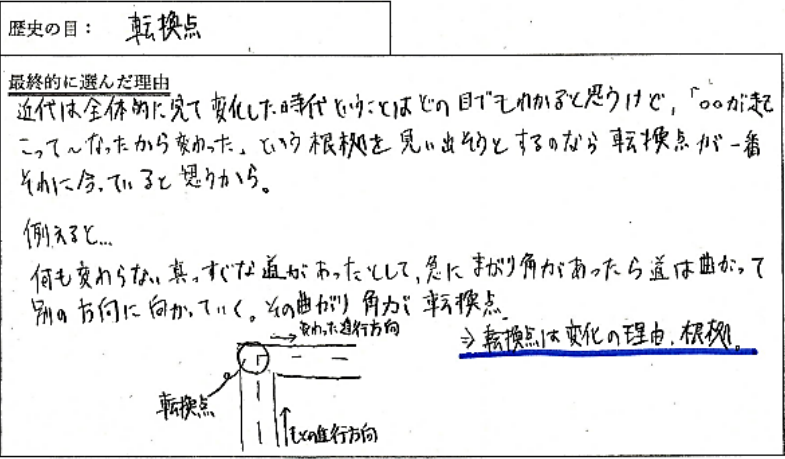 歴史の目： 転換点
最終的に選んだ理由
近代は全体的に見て変化した時代ということはどの目でもわかると思うけど、「○○が起
こって〜なったから変わった」という根拠を見い出そうとするのなら転換点が一番
それに合っていると思うから。
例えると…
何も変わらない真っすぐな道があったとして、急にまがり角があったら道は曲がって
別の方向に向かっていく。その曲がり角が転換点。
→変わった進行方向
⇒転換点は変化の理由、根拠。
転換点
↑もとの進行方向